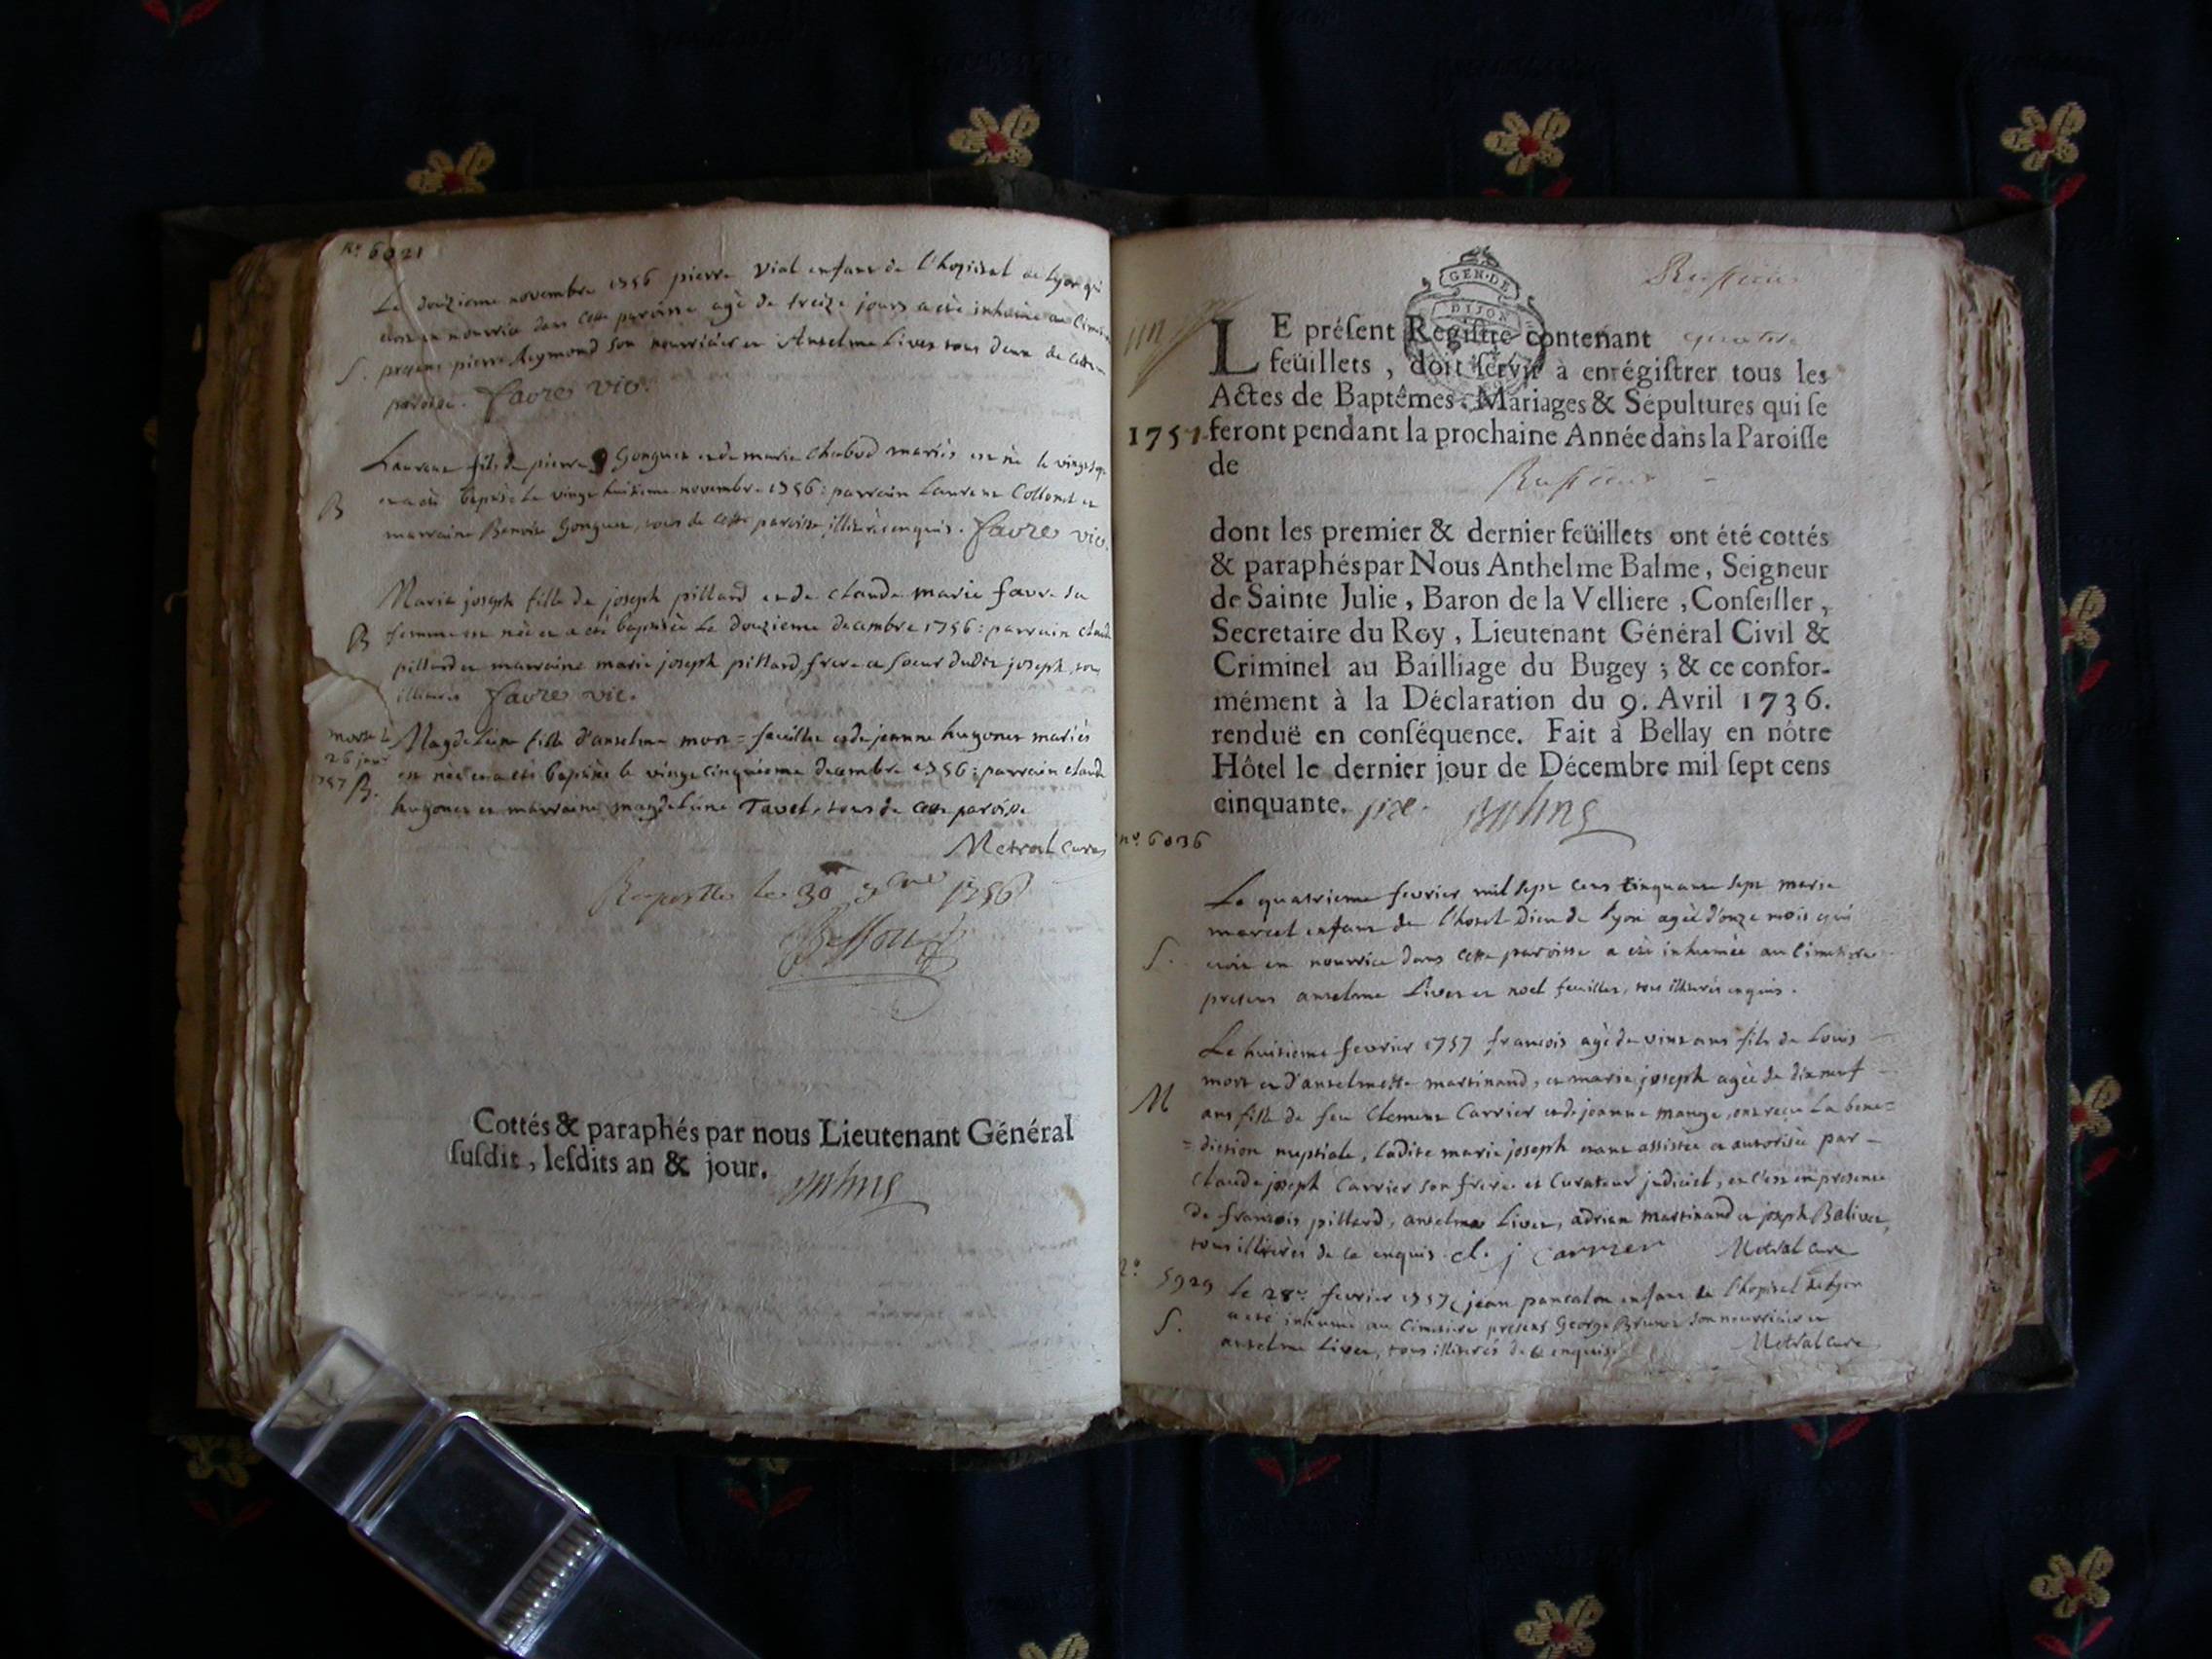 No. 6021
Le douzieme novembre 1756 pierre Vial enfant de l'hopital de lyon qui
etoit en nourrice dans cette paroisse agè de treize jours a etè inhumè au
S. presens pierre Reymond son nourricier et Anselme Livet tous deux de cette
paroisse. favre vic.
Laurent fils de pierre Gonguet et de marie Chabod mariès est nè le
B et a etè baptisè le vingt huitieme novembre 1756 : parrain Laurent Collomb et
marraine Benoite Gonguet, tous de cette paroisse illiterès enquis. favre vic.
Marie joseph fille de joseph pillard et de claude marie favre sa
B femme est nèe et a etè baptisèe le douzieme decembre 1756 : parrain claude
pillard et marraine marie joseph pillard, frere et soeur dudit joseph, tous
illiterès favre vic.
morte le
26 janv
1757
Magdeleine fille d'anselme mort=feuillet et de jeanne hugonet mariès
B. est nèe et a etè baptisèe le vingt cinquieme decembre 1756 : parrain claude
hugonet et marraine magdeleine Tavel, tous de cette paroisse
Metral curè
le 30 xbre 1756
Cottés & paraphés par nous Lieutenant Général
ſuſdit, leſdits an & jour.
GEN·DE
DIJON
LE préſent Regiſtre contenant quatre
feüillets, doit ſervir à enrégiſtrer tous les
Actes de Baptêmes, Mariages & Sépultures qui ſe
1757 feront pendant la prochaine Année dans la Paroiſſe
de
dont les premier & dernier feüillets ont été cottés
& paraphés par Nous Anthelme Balme, Seigneur
de Sainte Julie, Baron de la Velliere, Conſeiller,
Secretaire du Roy, Lieutenant Général Civil &
Criminel au Bailliage du Bugey ; & ce confor-
mément à la Déclaration du 9. Avril 1736.
renduë en conſéquence. Fait à Bellay en nôtre
Hôtel le dernier jour de Décembre mil ſept cens
cinquante. six. Balme
no. 6036
Le quatrieme fevrier mil sept cens cinquante sept marie
marcel enfant de l'hotel Dieu de lyon agèe d'onze mois qui
S. etoit en nourrice dans cette paroisse a etè inhumèe au cimetiere
presens anselme Livet et noel feuillet, tous illiterès enquis.
Le huitieme fevrier 1757 francois agè de vint ans fils de Louis
mort et d'anselmette martinand, et marie joseph agèe de dix neuf
M ans fille de feu Clement Carrier et de jeanne mange, ont reçu la bene=
=diction nuptiale, ladite marie joseph etant assistèe et autorisèe par
claude joseph Carrier son frere et Curateur judiciel, et c'est en presence
de francois pillard, anselme Livet, adrien martinand et joseph Balivet,
tous illiterès de ce enquis. cl. j carrier Metral curè
5929 le 28e. fevrier 1757 jean pantalon enfant de l'hopital de lyon
S. a etè inhumè au cimetiere presens George Brunet son nourricier et
anselme Livet, tous illiterès de ce enquis. Metral curè